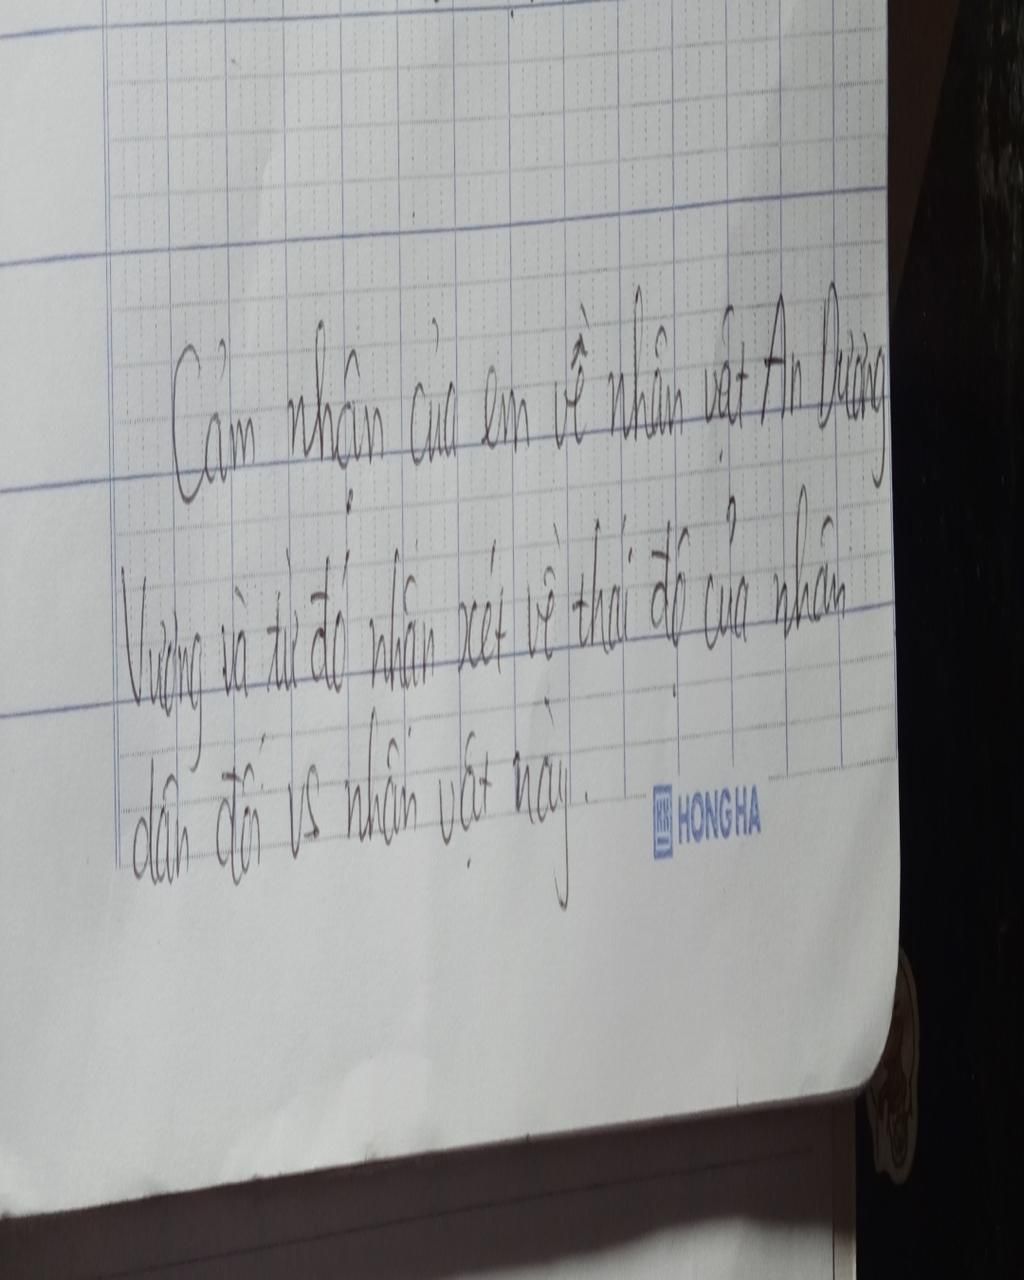 Cảm nhận của em về nhân vật An Dương
Vương và từ đó nhận xét về thái độ của nhân
dân đối vs nhân vật này.
HONG HA